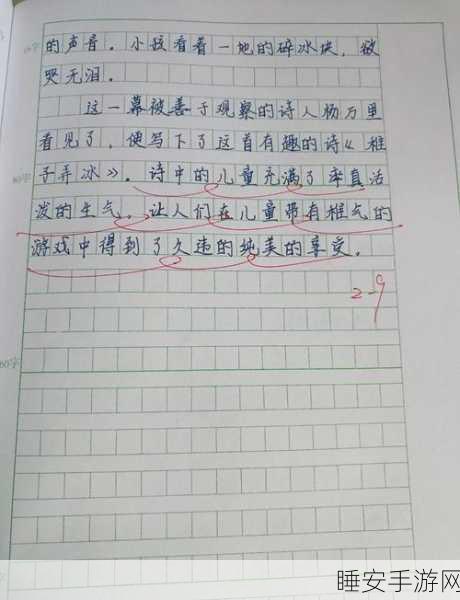 的声音。小孩看着一地的碎冰块，欲
哭无泪。
这一幕被善于观察的诗人杨万里
看见了，便写下了这首有趣的诗《稚
子弄冰》。诗中的儿童充满了率真活
泼的生气。让人们在儿童带有稚气的
游戏中得到了久违的纯美的享受。
2-9
睡安手游网